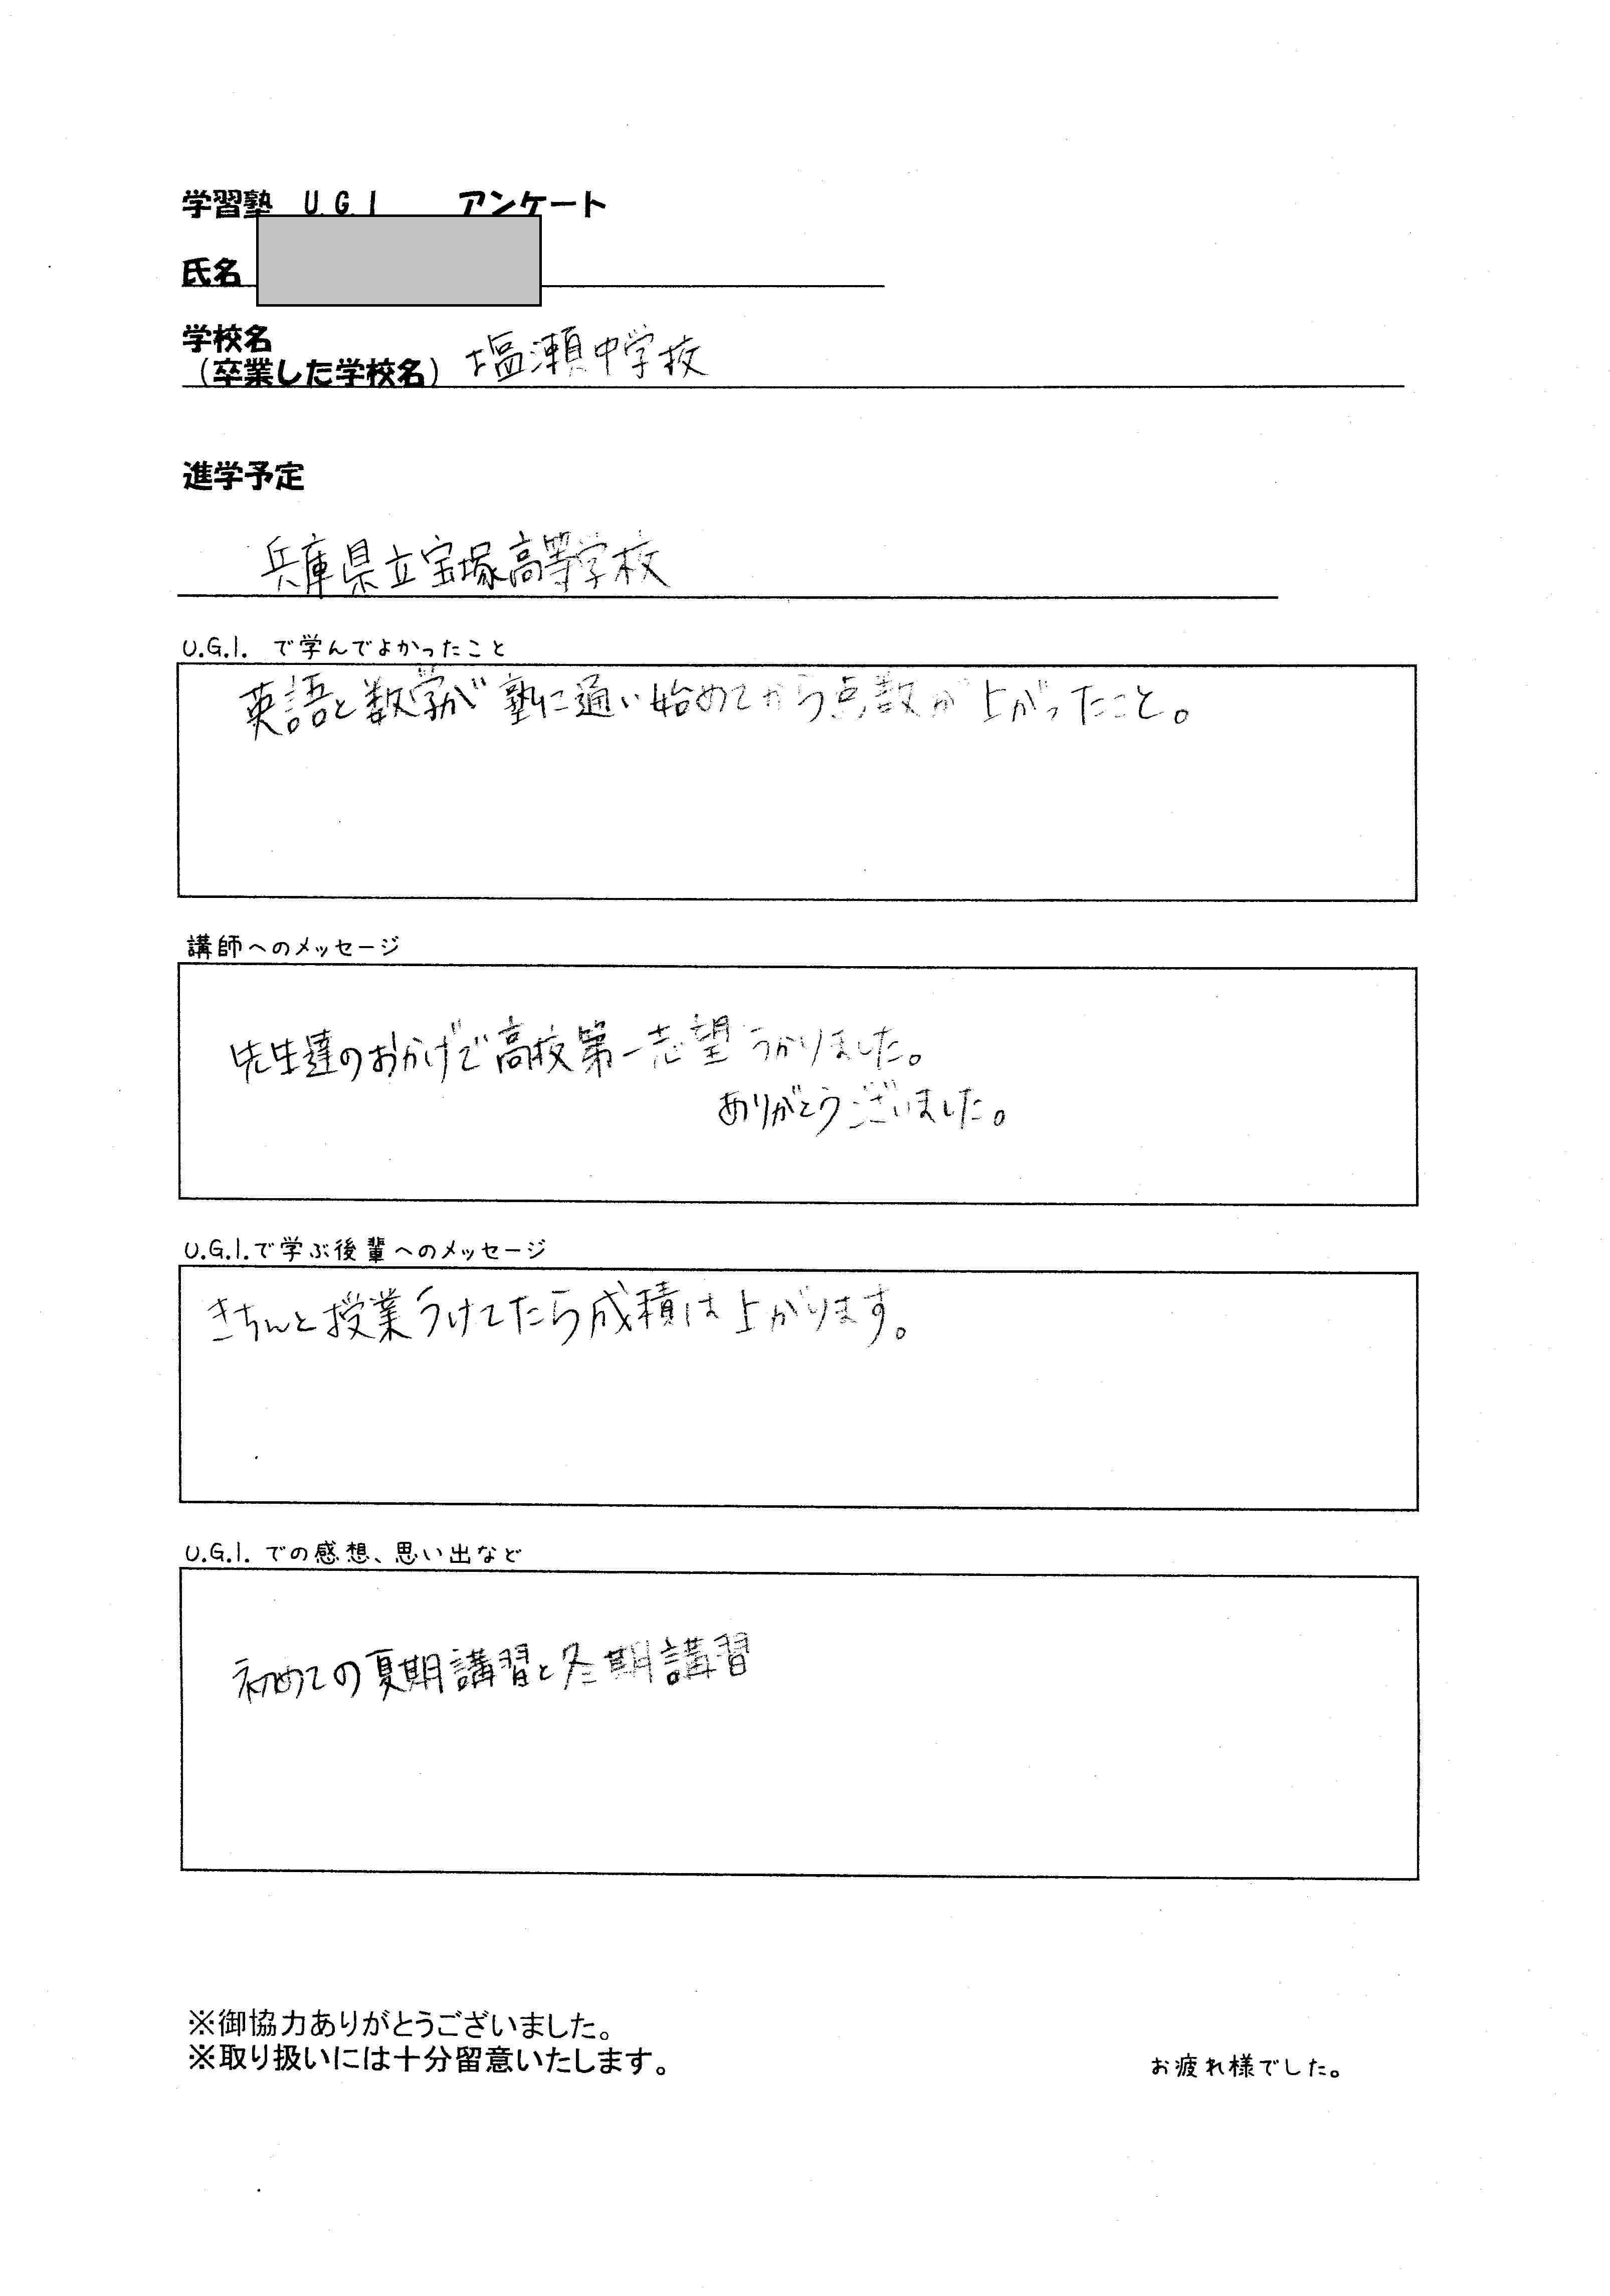 学習塾 U.G.I アンケート
氏名
学校名
（卒業した学校名） 塩瀬中学校
進学予定
兵庫県立宝塚高等学校
U.G.I. で学んでよかったこと
英語と数学が塾に通い始めてから点数が上がったこと。
講師へのメッセージ
先生達のおかげで高校第一志望うかりました。
ありがとうございました。
U.G.I.で学ぶ後輩へのメッセージ
きちんと授業うけてたら成績は上がります。
U.G.I. での感想、思い出など
初めての夏期講習と冬期講習
※御協力ありがとうございました。
※取り扱いには十分留意いたします。
お疲れ様でした。